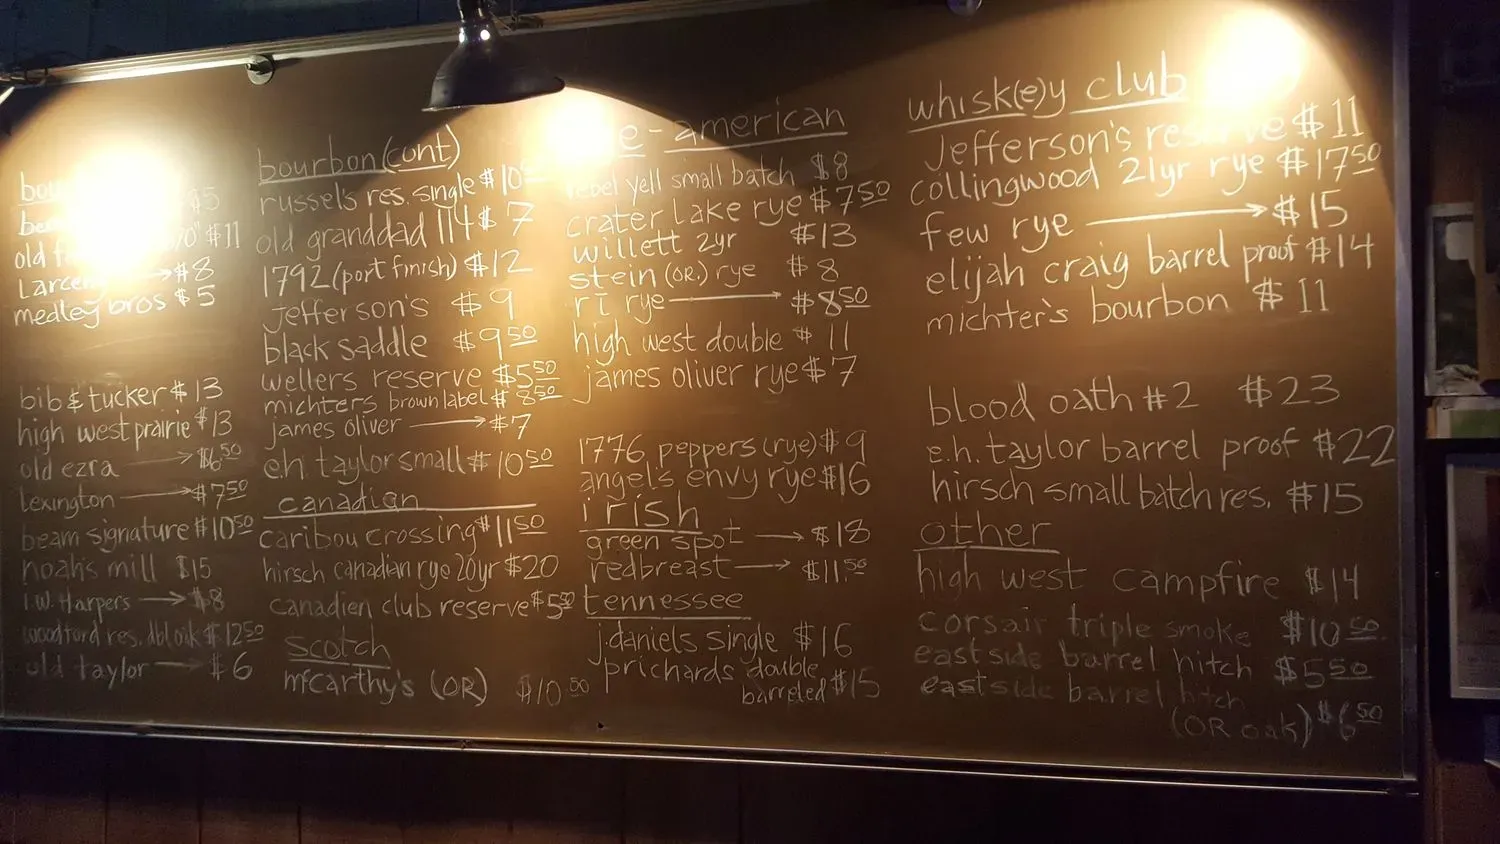 $5
old $11
Larceny → $8
medley bros $5
bib & tucker $13
high west prairie $13
old ezra → $6.50
lexington → $7.50
beam signature $10.50
noah's mill $15
I.W. Harpers → $8
woodford res. dbl oak $12.50
old taylor → $6
bourbon (cont)
russel's res. single $10
old granddad 114 $7
1792 (port finish) $12
Jefferson's $9
black saddle $9.50
wellers reserve $5.50
michters brown label $8.50
james oliver → $7
e.h. taylor small $10.50
canadian
caribou crossing $11.50
hirsch canadian rye 20yr $20
canadien club reserve $5.50
scotch
mccarthy's (OR) $10.50
- american
rebel yell small batch $8
crater lake rye $7.50
willett 2yr $13
stein (OR.) rye $8
ri rye → $8.50
high west double $11
james oliver rye $7
1776 peppers (rye) $9
angel's envy rye $16
irish
green spot → $18
redbreast → $11.50
tennessee
j.daniels single $16
prichards double
barreled $15
whisk(e)y club
Jefferson's reserve $11
collingwood 21yr rye $17.50
few rye → $15
elijah craig barrel proof $14
michter's bourbon $11
blood oath #2 $23
e.h. taylor barrel proof $22
hirsch small batch res. $15
other
high west campfire $14
corsair triple smoke $10.50
eastside barrel hitch $5.50
eastside barrel hitch
(OR oak) $6.50